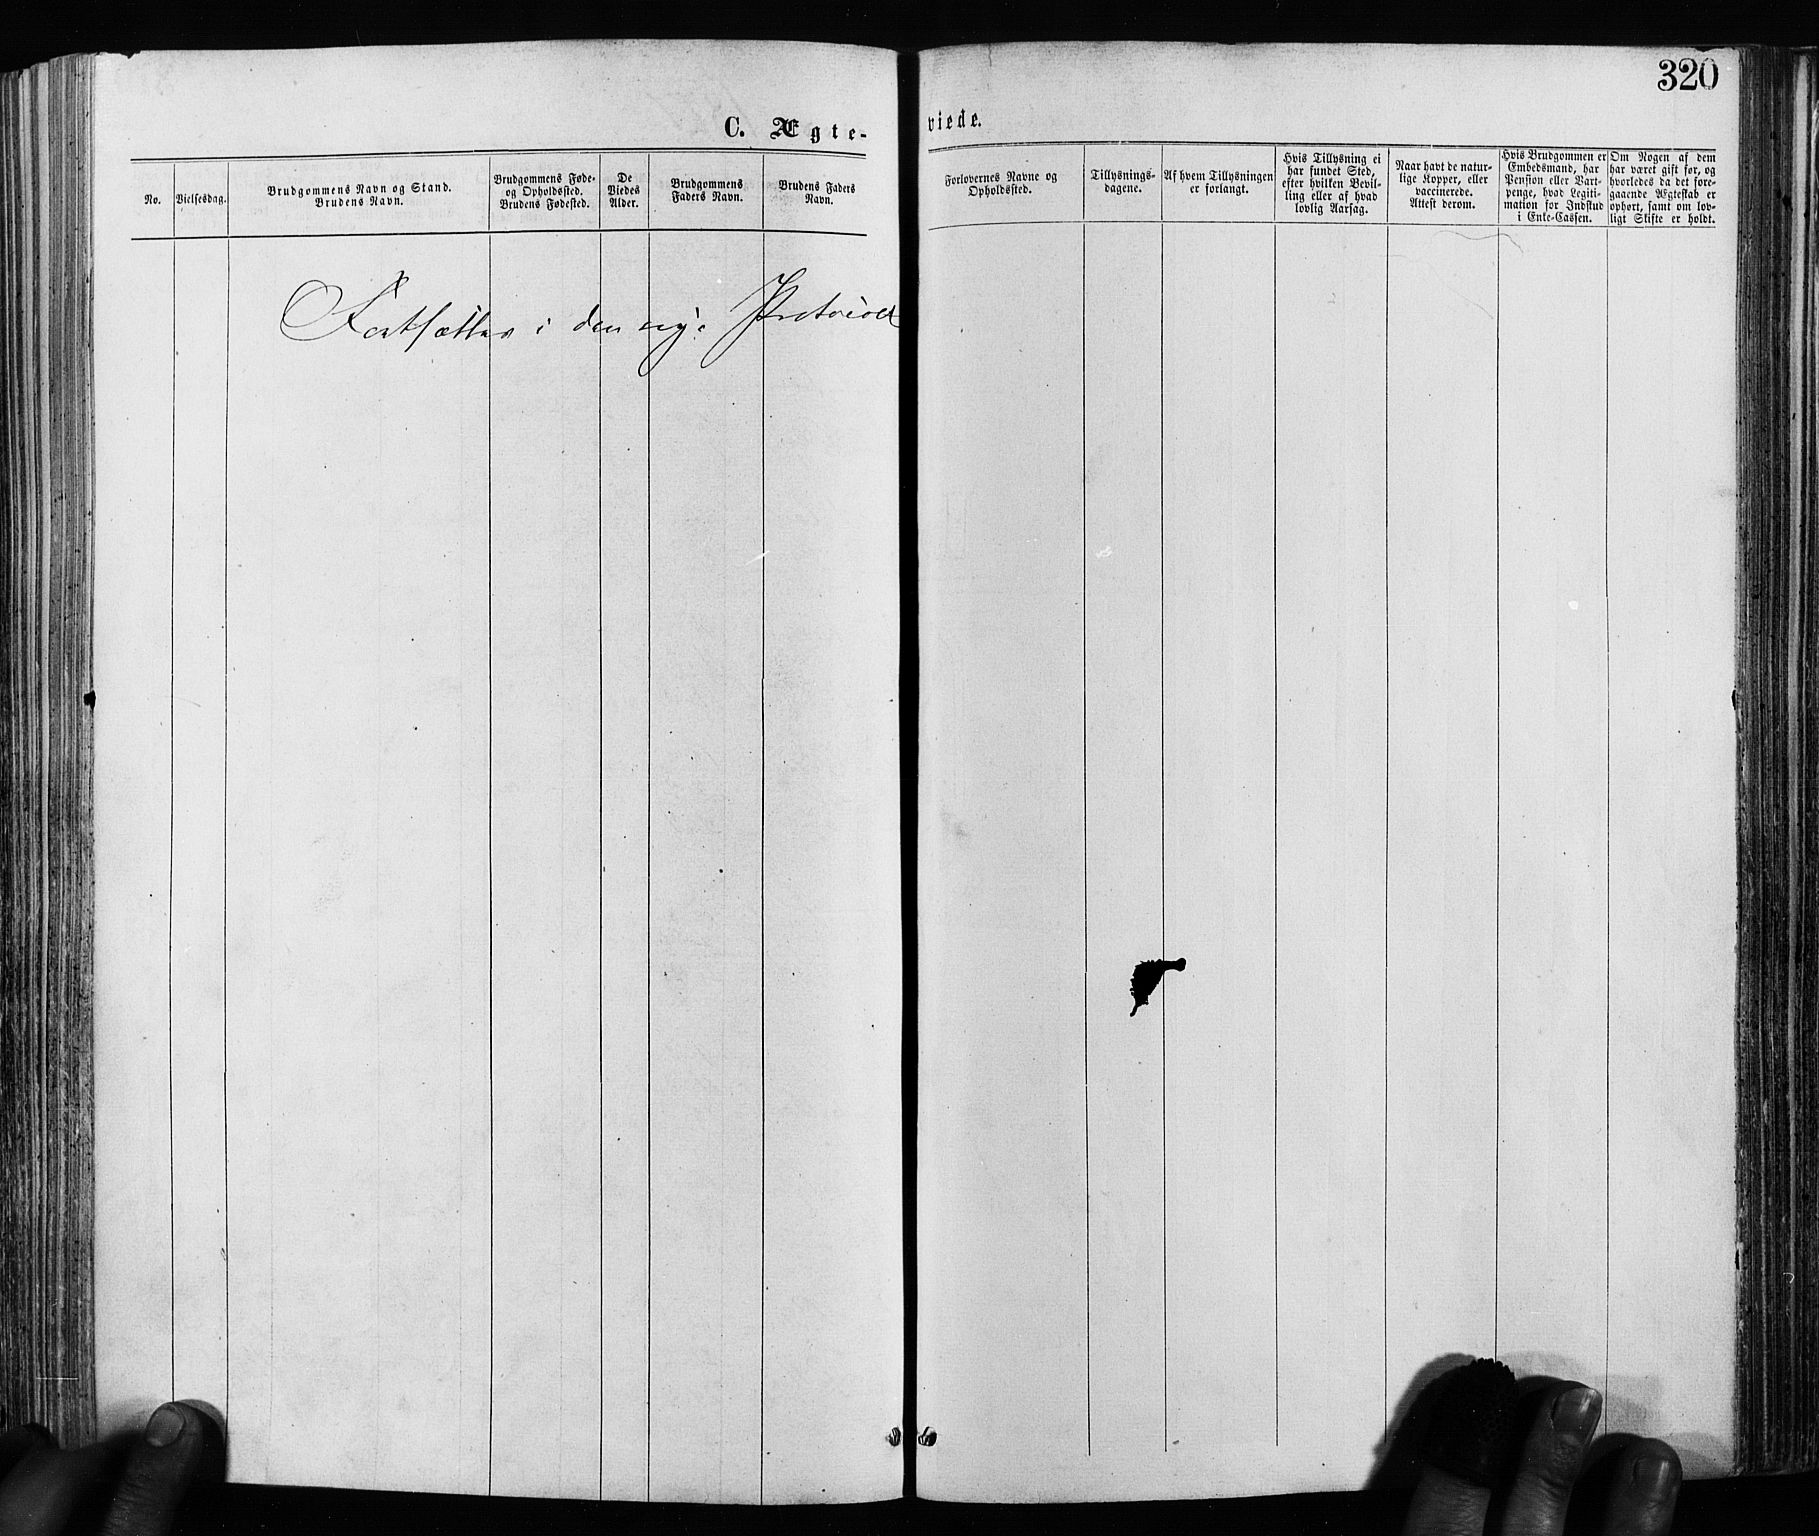 320
C. Ægte-
viede.
No.
Vielsesdag.
Brudgommens Navn og Stand.
Brudens Navn.
Brudgommens Føde-
og Opholdssted.
Brudens Fødested.
De
Viedes
Alder.
Brudgommens
Faders Navn.
Brudens Faders
Navn.
Forlovernes Navne og
Opholdssted.
Tillysnings-
dagene.
Af hvem Tillysningen
er forlangt.
Hvis Tillysning ei
har fundet Sted,
efter hvilken Bevil-
ling eller af hvad
lovlig Aarsag.
Naar havt de natur-
lige Kopper, eller
vaccinerede.
Attest derom.
Hvis Brudgommen er
Embedsmand, har
Pension eller Vart-
penge, hvad Legiti-
mation for Indskud
i Enke-Cassen.
Om Nogen af dem
har været gift før, og
hvorledes da det fore-
gaaende Ægteskab er
ophørt, samt om lov-
ligt Skifte er holdt.
Fortsættes i den nye Protocol